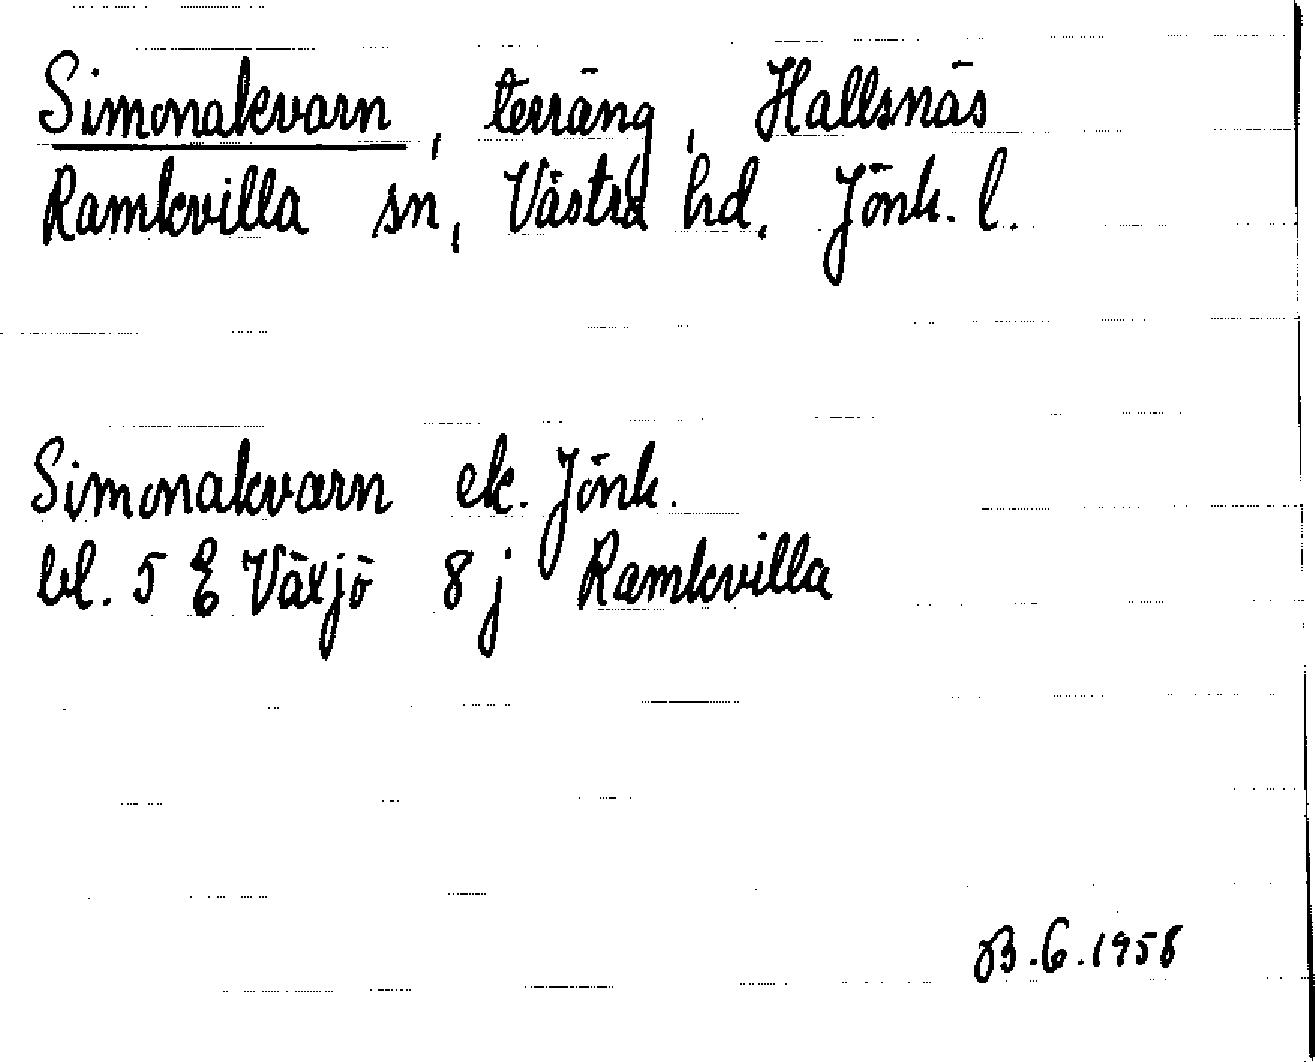 Simonakvarn, terräng, Hallsnäs
Ramkvilla sn, Västra hd, Jönk. l.
Simonakvarn ek. Jönk.
bl. 5 E Växjö 8 j Ramkvilla
B.G.1958